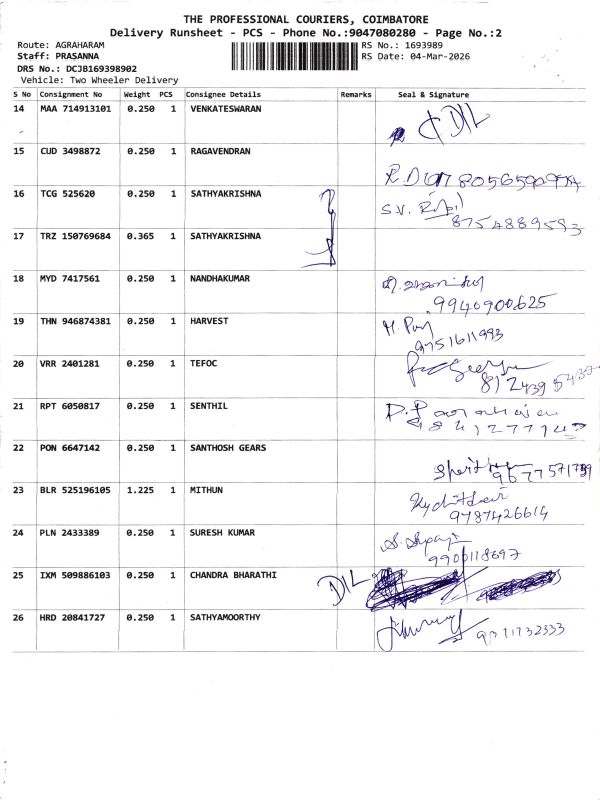 THE PROFESSIONAL COURIERS, COIMBATORE
Delivery Runsheet - PCS - Phone No.:9047080280 - Page No.:2
Route: AGRAHARAM
Staff: PRASANNA
DRS No.: DCJB169398902
Vehicle: Two Wheeler Delivery
RS No.: 1693989
RS Date: 04-Mar-2026
S No Consignment No Weight PCS Consignee Details Remarks Seal & Signature
14 MAA 714913101 0.250 1 VENKATESWARAN DIL
15 CUD 3498872 0.250 1 RAGAVENDRAN
16 TCG 525620 0.250 1 SATHYAKRISHNA S.V. 8754889593
17 TRZ 150769684 0.365 1 SATHYAKRISHNA
18 MYD 7417561 0.250 1 NANDHAKUMAR 9940900625
19 THN 946874381 0.250 1 HARVEST 9751611993
20 VRR 2401281 0.250 1 TEFOC
21 RPT 6050817 0.250 1 SENTHIL
22 PON 6647142 0.250 1 SANTHOSH GEARS
23 BLR 525196105 1.225 1 MITHUN 9787426614
24 PLN 2433389 0.250 1 SURESH KUMAR
25 IXM 509886103 0.250 1 CHANDRA BHARATHI DIL
26 HRD 20841727 0.250 1 SATHYAMOORTHY